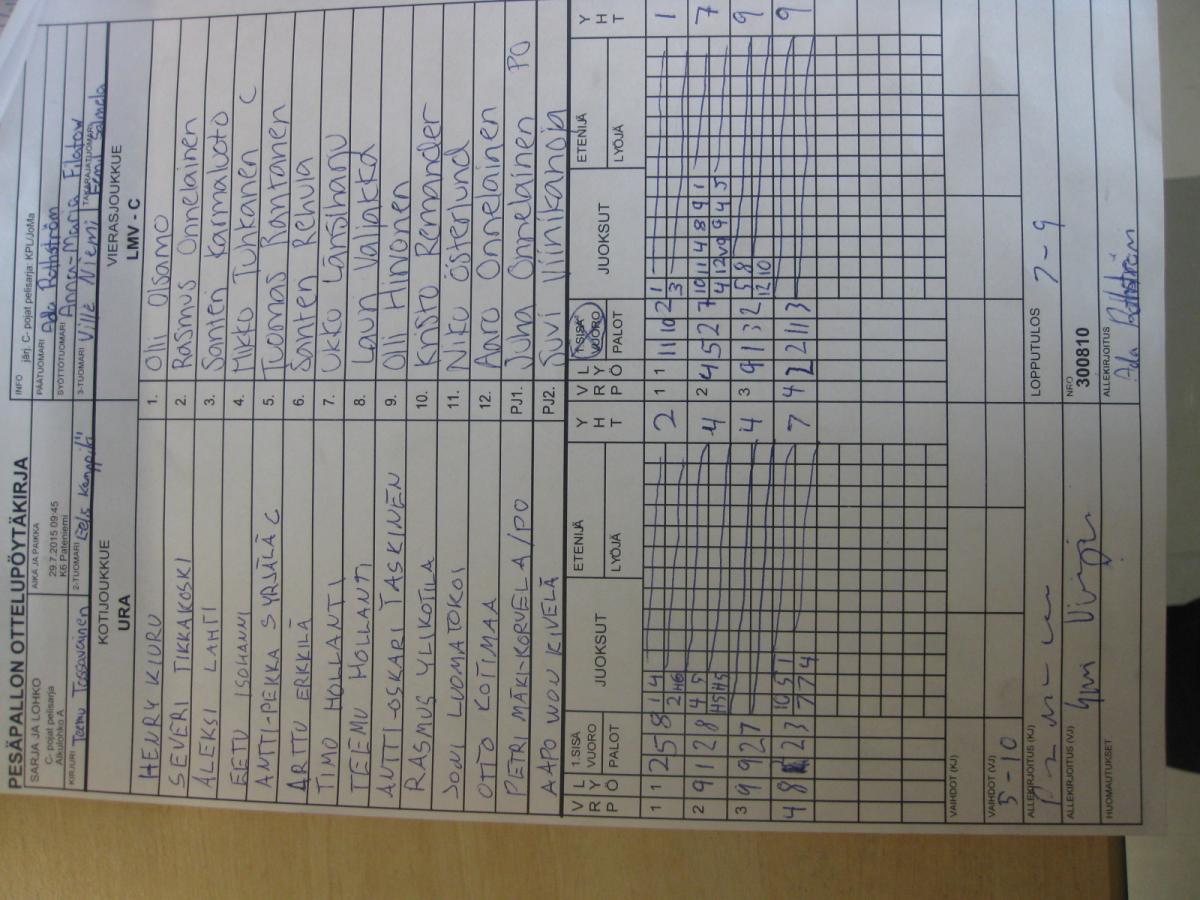 PESÄPALLON OTTELUPÖYTÄKIRJA
SARJA JA LOHKO
C- pojat pelisarja
Alkulohko A
AIKA JA PAIKKA
29.7.2015 09:45
K6 Pateniemi
INFO järj. C- pojat pelisarja: KPUJoMa
PÄÄTUOMARI Ada Rönnström
SYÖTTÖTUOMARI Anna-Maria Filatow
KIRJURI Teemu Tossavainen
2-TUOMARI Eels Kamppila
3-TUOMARI Ville Niemi
TAKARAJATUOMARI Eemil Salmela
KOTIJOUKKUE
URA
VIERASJOUKKUE
LMV - C
HENRY KIURU 1. Olli Olsamo
SEVERI TIKKAKOSKI 2. Rasmus Onnelainen
ALEKSI LAHTI 3. Santeri Karmaluoto
EETU ISOHANNI 4. Mikko Tuhkanen C
ANTTI-PEKKA SYRJÄLÄ C 5. Tuomas Rantanen
ARTTU ERKKILÄ 6. Santeri Rehula
TIMO HOLLANTI 7. Ukko Länsiharju
TEEMU HOLLANTI 8. Lauri Valjakka
ANTTI-OSKARI TASKINEN 9. Olli Hirvonen
RASMUS YLIKOTILA 10. Kristo Remander
JONI LUOMATOKOI 11. Niku Österlund
OTTO KOTIMAA 12. Aaro Onnelainen
PETRI MÄKI-KORVELA/PO PJ1. Juha Onnelainen PO
AAPO WOU KIVELÄ PJ2. Suvi Viinikanoja
V R P L Y Ö 1.SISÄ VUORO PALOT JUOKSUT ETENIJÄ LYÖJÄ Y H T
V R P L Y Ö 1.SISÄ VUORO PALOT JUOKSUT ETENIJÄ LYÖJÄ Y H T
1 1 2 5 8 1 4 2 1 1 11 10 2 1 1
2 3
2 9 1 2 8 4 5 4 2 4 5 2 7 10 11 4 8 9 1 7
3 9 9 2 7 4 3 9 1 3 2 5 8 9
12 10
4 8 2 3 10 5 1 7 4 2 2 11 3 9
7 7 4
VAIHDOT (KJ)
VAIHDOT (VJ)
5-10
LOPPUTULOS 7-9
ALLEKIRJOITUS (KJ)
ALLEKIRJOITUS (VJ)
NRO
300810
HUOMAUTUKSET
ALLEKIRJOITUS